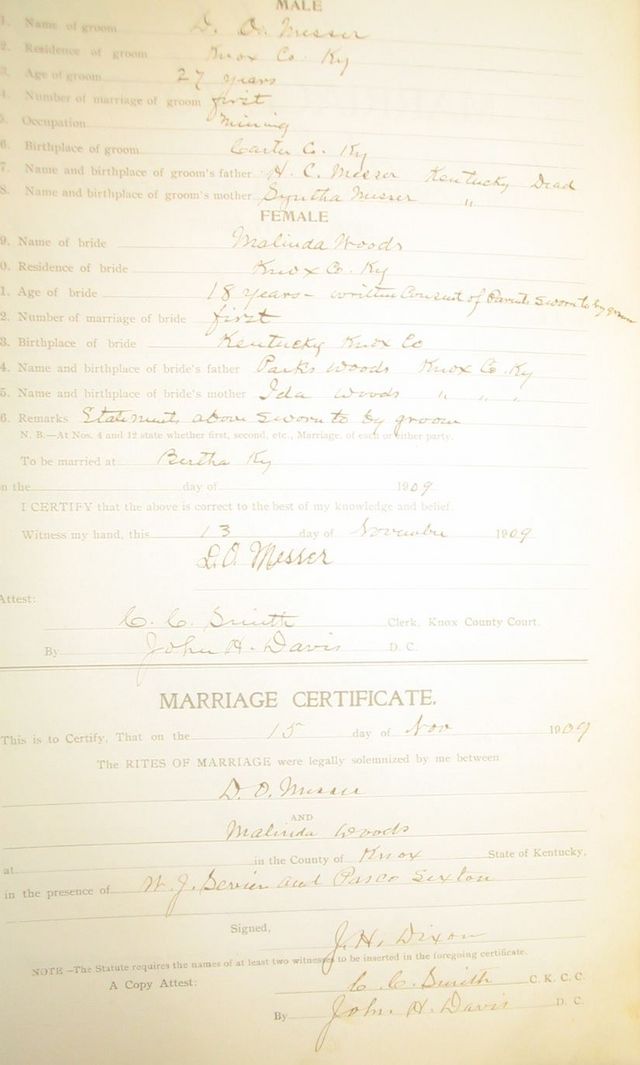 MALE
1. Name of groom D. O. Messer
2. Residence of groom Knox Co. Ky
3. Age of groom 27 years
4. Number of marriage of groom first
5. Occupation Mining
6. Birthplace of groom Carter Co. Ky
7. Name and birthplace of groom's father H. C. Messer Kentucky Dead
8. Name and birthplace of groom's mother Syntha Messer "
FEMALE
9. Name of bride Malinda Woods
0. Residence of bride Knox Co. Ky
1. Age of bride 18 years - written Consent of Parents sworn to by groom
2. Number of marriage of bride first
3. Birthplace of bride Kentucky Knox Co
4. Name and birthplace of bride's father Parks Woods Knox Co. Ky
5. Name and birthplace of bride's mother Ida Woods " " "
6. Remarks Statements above sworn to by groom
N. B.—At Nos. 4 and 12 state whether first, second, etc., Marriage, of each or either party.
To be married at Bertha Ky
on the day of 1909
I CERTIFY that the above is correct to the best of my knowledge and belief.
Witness my hand, this 13 day of November 1909
D. O. Messer
Attest:
C. C. Smith Clerk, Knox County Court.
By John H. Davis D. C.
MARRIAGE CERTIFICATE.
This is to Certify, That on the 15 day of Nov 1909
The RITES OF MARRIAGE were legally solemnized by me between
D. O. Messer
AND
Malinda Woods
at in the County of Knox State of Kentucky,
in the presence of W. J. Servier and Pasco Sexton
Signed,
J. H. Dixon
NOTE—The Statute requires the names of at least two witnesses to be inserted in the foregoing certificate.
A Copy Attest: C. C. Smith C. K. C. C.
By John. H. Davis D. C.